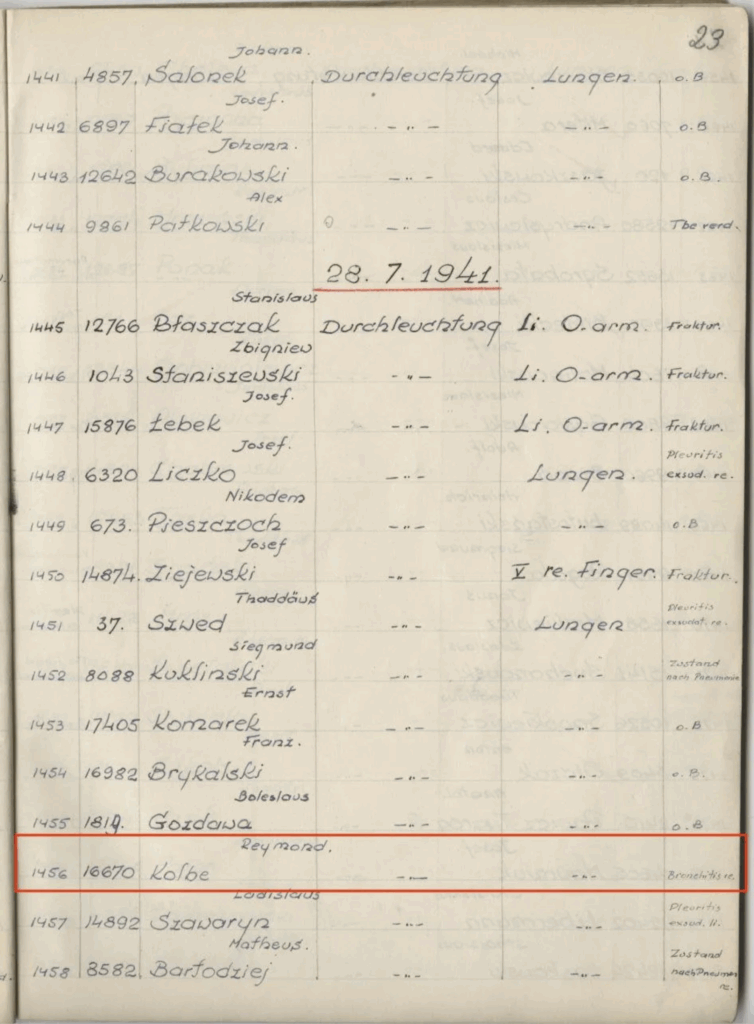 23
Johann.
1441 4857. Salonek Durchleuchtung Lungen. o.B
Josef.
1442 6897 Fiałek -"- -"- o.B
Johann.
1443 12642 Burakowski -"- -"- o.B.
Alex
1444 9861 Patkowski -"- -"- Tbc verd.
28. 7. 1941.
Stanislaus
1445 12766 Błaszczak Durchleuchtung Li. O-arm. Fraktur.
Zbigniew
1446 1043 Staniszewski -"- Li. O-arm. Fraktur.
Josef.
1447 15876 Łebek -"- Li. O-arm. Fraktur.
Josef. Pleuritis
1448 6320 Liczko -"- Lungen. exsud. re.
Nikodem
1449 673. Pieszczoch -"- -"- o.B
Josef
1450 14874. Ziejewski -"- V re. Finger. Fraktur.
Thaddäuß Pleuritis
1451 37. Szwed -"- Lungen exsudat. re.
Siegmund Zustand
1452 8088 Kuklinski -"- -"- nach Pneumonie
Ernst
1453 17405 Komarek -"- -"- o.B
Franz.
1454 16982 Brykalski -"- -"- o.B.
Boleslaus
1455 1819. Gozdawa -"- -"- o.B
Reymond.
1456 16670 Kolbe -"- -"- Bronchitis re.
Ladislaus Pleuritis
1457 14892 Szawaryn -"- -"- exsud. li.
Matheuß. Zustand
1458 8582 Bartodziej -"- -"- nach Pneumon
re.